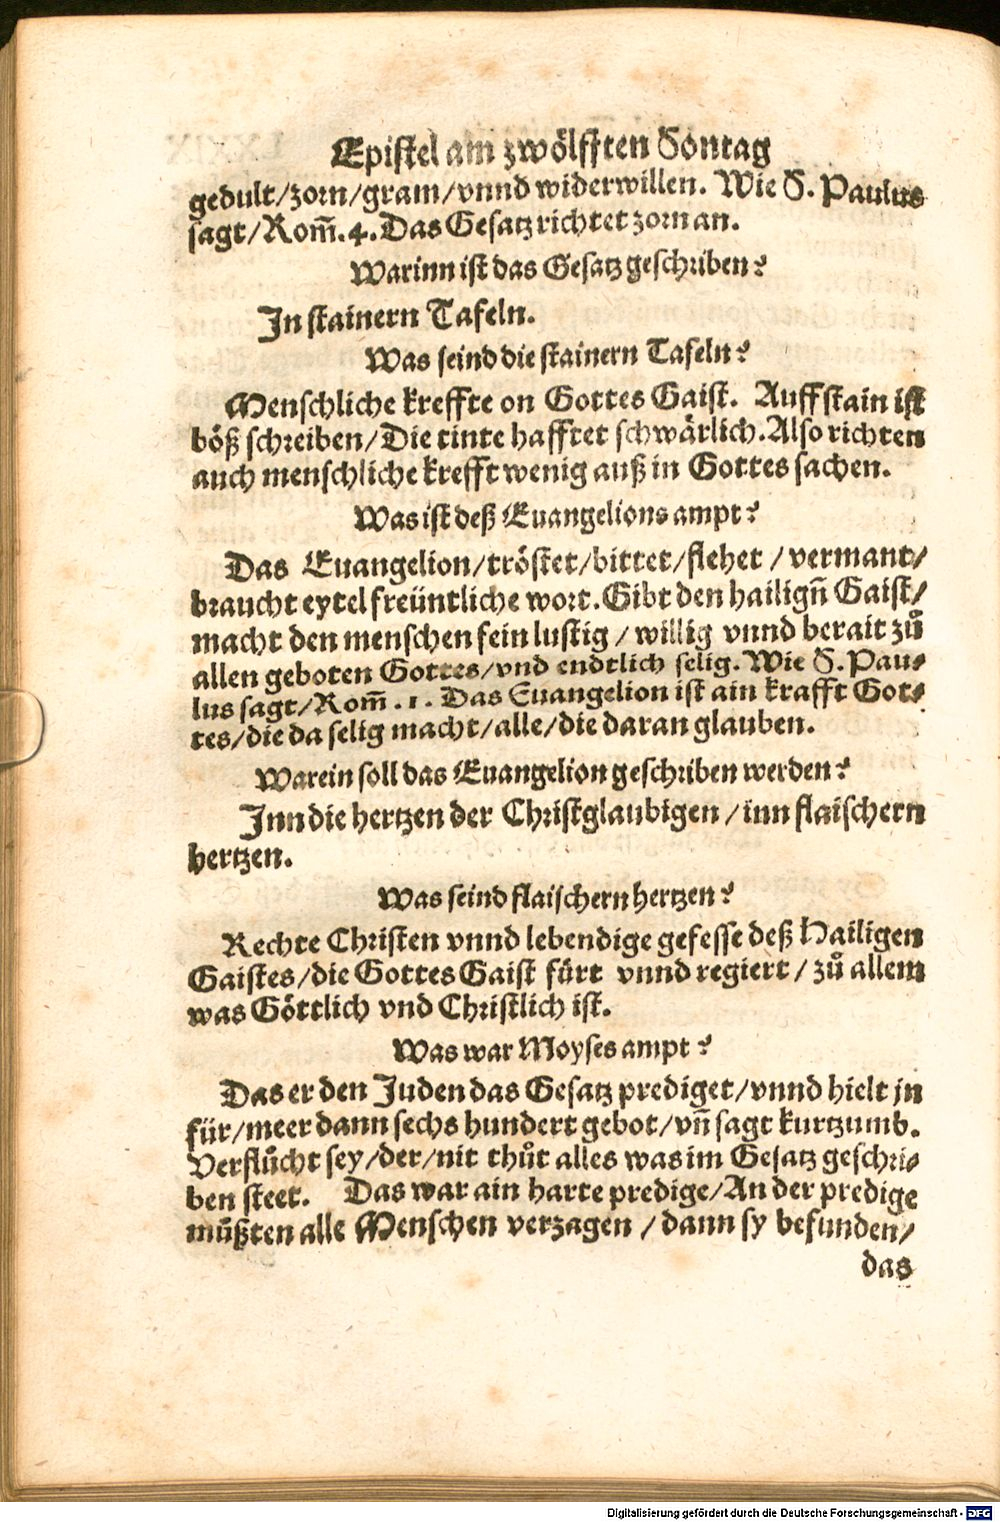 Epistel am zwölfften Sontag
gedult/zorn/gram/vnnd widerwillen. Wie S. Paulus
sagt/Rom̃.4. Das Gesatz richtet zorn an.
Warinn ist das Gesatz geschriben?
In stainern Tafeln.
Was seind die stainern Tafeln?
Menschliche kreffte on Gottes Gaist. Auff stain ist
böß schreiben/Die tinte hafftet schwärlich. Also richten
auch menschliche krefft wenig auß in Gottes sachen.
Was ist deß Euangelions ampt?
Das Euangelion/tröstet/bittet/flehet/vermant/
braucht eytel freüntliche wort. Gibt den hailigñ Gaist/
macht den menschen fein lustig/willig vnnd berait zů
allen geboten Gottes/vnd endtlich selig. Wie S. Pau-
lus sagt/Rom̃.1. Das Euangelion ist ain krafft Got-
tes/die da selig macht/alle/die daran glauben.
Warein soll das Euangelion geschriben werden?
Inn die hertzen der Christglaubigen/inn flaischern
hertzen.
Was seind flaischern hertzen?
Rechte Christen vnnd lebendige gefesse deß Hailigen
Gaistes/die Gottes Gaist fürt vnnd regiert/zů allem
was Göttlich vnd Christlich ist.
Was war Moyses ampt?
Das er den Juden das Gesatz prediget/vnnd hielt jn
für/meer dann sechs hundert gebot/vñ sagt kurtzumb.
Verflůcht sey/der/nit thůt alles was im Gesatz geschri-
ben steet. Das war ain harte predige/An der predige
můßten alle Menschen verzagen/dann sy befunden/
das
Digitalisierung gefördert durch die Deutsche Forschungsgemeinschaft - DFG